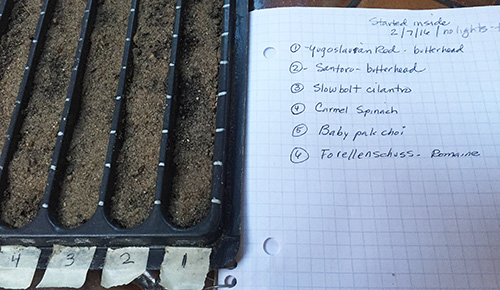 Started inside
2/7/16 / no lights
① Yugoslavian Red - butterhead
② - Santoro - butterhead
③ Slowbolt cilantro
④ Carmel Spinach
⑤ Baby pak choi
⑥ Forellenschuss - Romaine
4 3 2 1